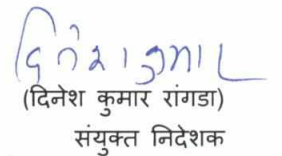 दिनेश कुमार
(दिनेश कुमार रांगडा)
संयुक्त निदेशक